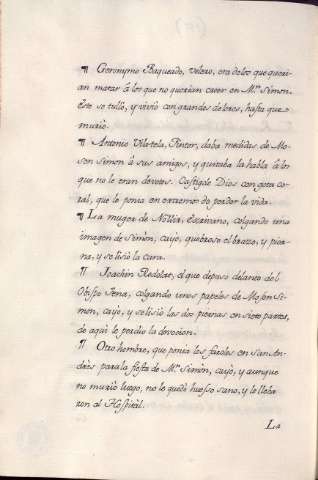 ¶ Geronymo Baqueado, Velero, era de los que queri-
an matar à los que no querian creer en Mⁿ Simon.
Este se tulló, y vivió con grandes dolores, hasta que
murió.
¶ Antonio Vila-tela, Pintor, daba medidas de Mo-
sen Simon à sus amigos, y quitaba la habla à los
que no le eran devotos. Castigóle Dios con gota co-
ral, que le ponia en extremo de perder la vida.
¶ La muger de Escrivano, colgando una
imagen de Simòn, cayó, quebrose el brazo, y pier-
na, y se lisió la cara.
¶ Joachin Redolat, el que depusó delante del
Obispo Pena, colgando unos papeles de Mosen Si-
mon, cayó, y se lisió las dos piernas en siete partes,
de aqui le perdió la devocion.
¶ Otro hombre, que ponia los faroles en San An-
drès para la fiesta de Mⁿ Simòn, cayó, y aunque
no murió luego, no le quedó huesso sano, y le lleba-
ron al Hospitàl.
La